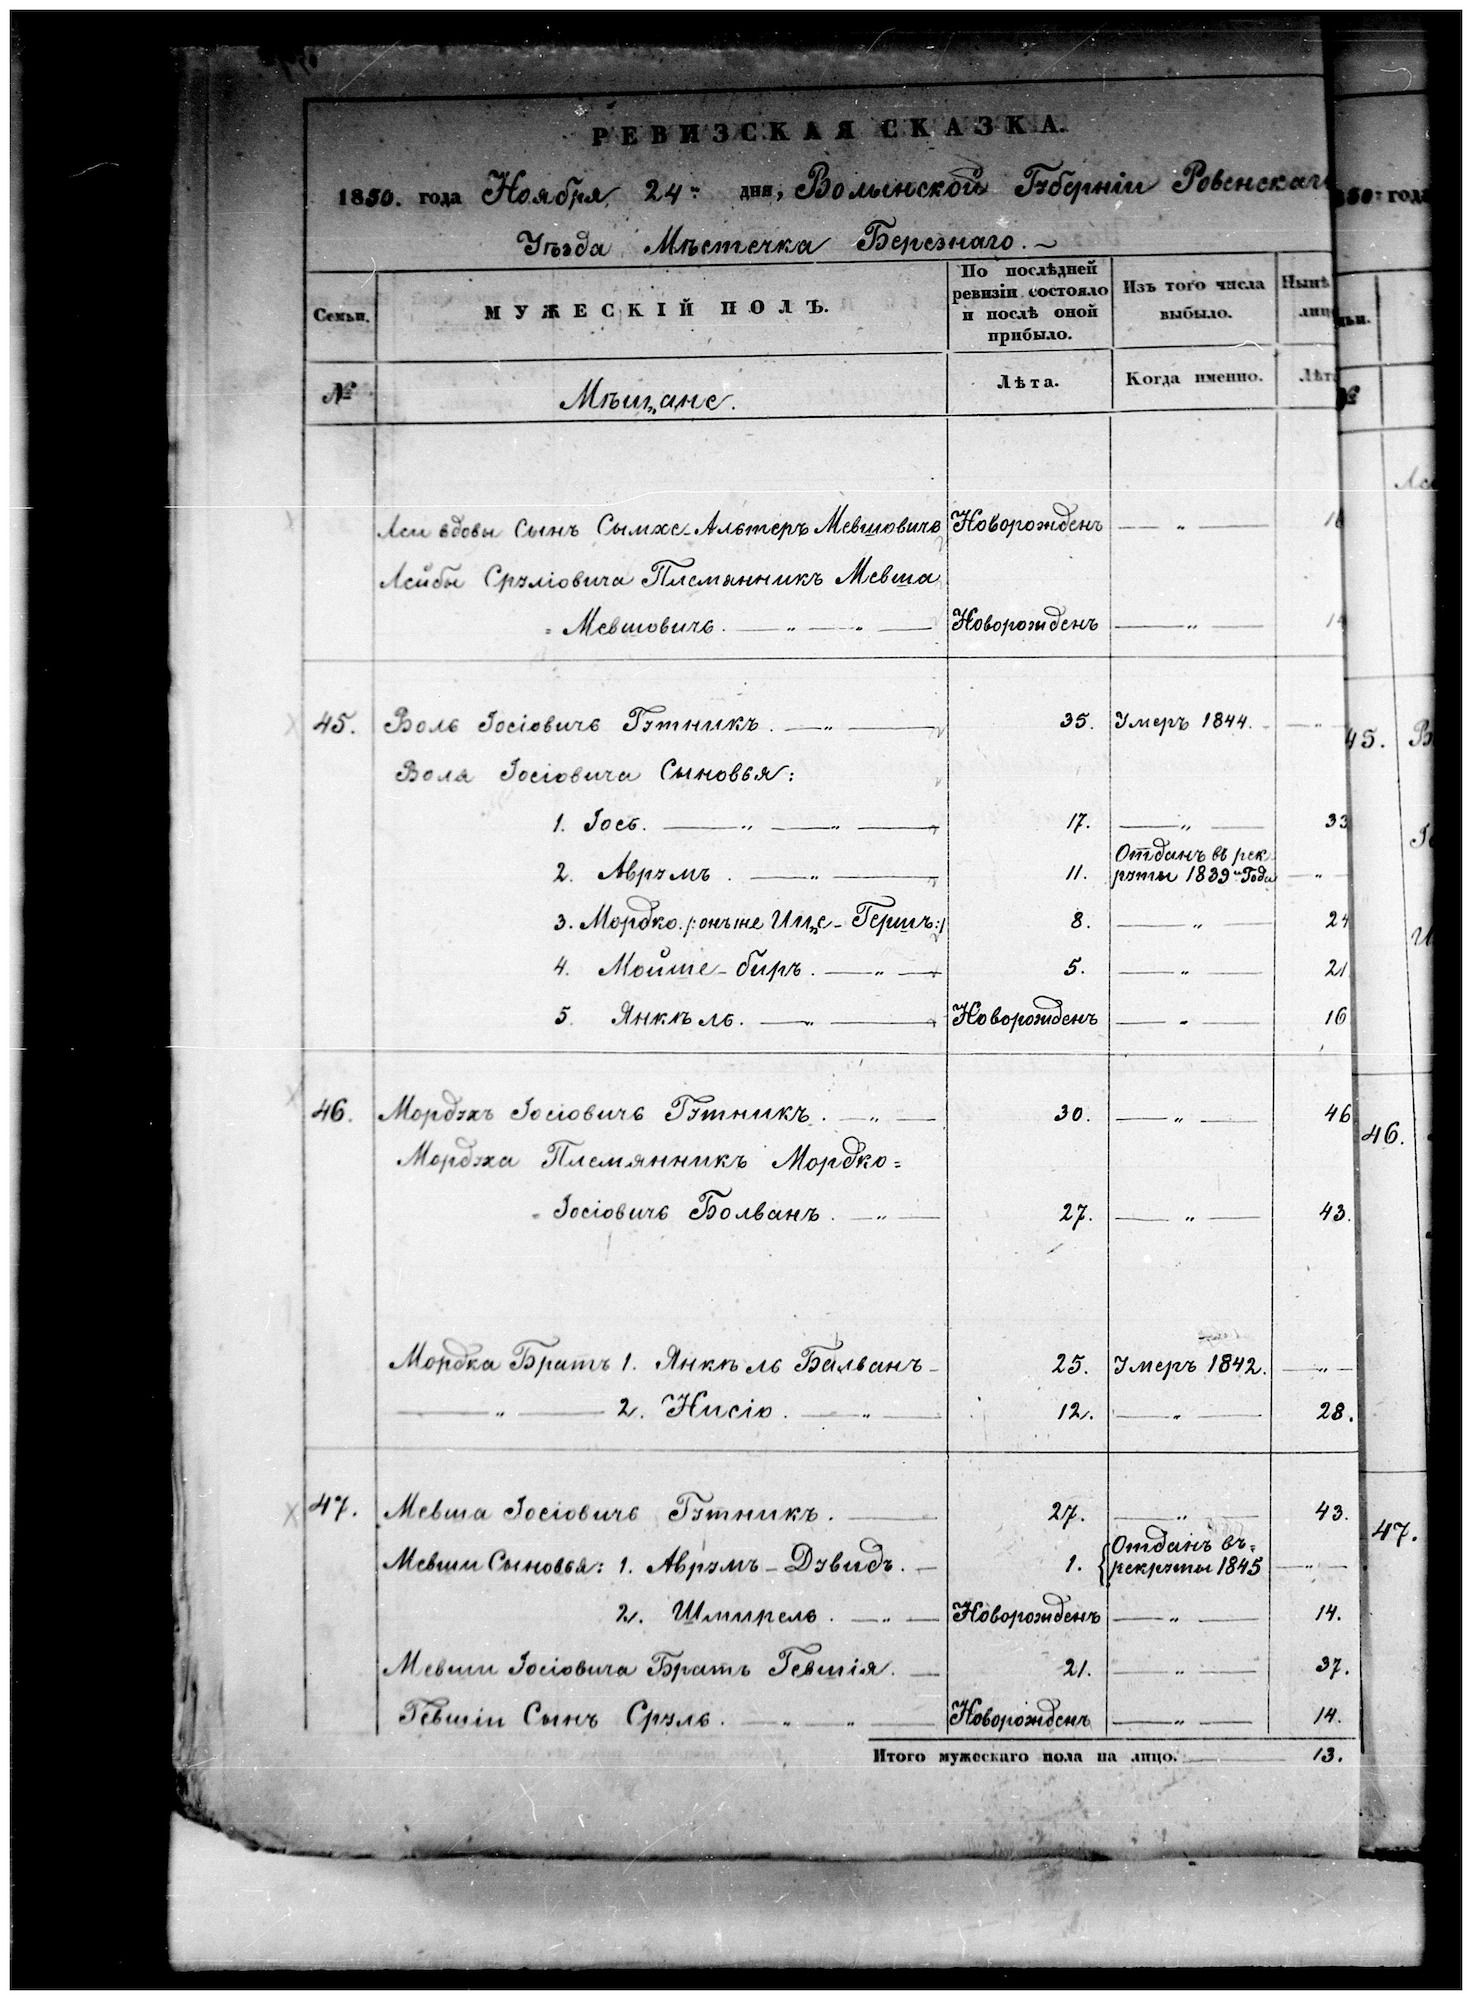 РЕВИЗСКАЯ СКАЗКА.
1850. года Ноября 24 дня, Волынской Губерніи Ровенскаг
Уѣзда Мѣстечка Березнаго.
Семьи. МУЖЕСКІЙ ПОЛЪ. По послѣдней ревизіи состояло и послѣ оной прибыло. Изъ того числа выбыло. Нынѣ лиц
№ Мѣщане. Лѣта. Когда именно. Лѣт
Аси вдовы Сынъ Сымхе-Альтеръ Мевшовичь Новорожденъ — " —
Лейбы Сруліовича Племянникъ Мевша
= Мевшовичь. — " — " — Новорожденъ — " —
45. Воль Іосіовичь Гутникъ. — " — 35. Умеръ 1844. — "
Воля Іосіовича Сыновья:
1. Іось. — " — " — 17. — " — 33
2. Аврумъ. — " — 11. Отданъ въ рек
руты 1839 Года — "
3. Мордко /: онъ же Ице-Гершъ:/ 8. — " — 24
4. Мойше-биръ. — " — 5. — " — 21
5. Янкѣль. — " — Новорожденъ — " — 16
46. Мордухъ Іосіовичь Гутникъ. — " — 30. — " — 46
Мордуха Племянникъ Мордко=
= Іосіовичь Болванъ. — " — 27. — " — 43.
Мордка Братъ 1. Янкѣль Балванъ — 25. Умеръ 1842. — " —
— " — 2. Нисіо. — " — 12. — " — 28.
47. Мевша Іосіовичь Гутникъ. — 27. — " — 43.
Мевши Сыновья: 1. Аврумъ-Дувидъ. — 1. { Отданъ въ=
рекруты 1845 — " —
2. Шмирель. — " — Новорожденъ — " — 14.
Мевши Іосіовича Братъ Гевшія. — 21. — " — 37.
Гевшіи Сынъ Сруль. — " — " — Новорожденъ — " — 14.
Итого мужескаго пола на лицо. — 13.
850 года
ьи.
№
45.
46.
47.